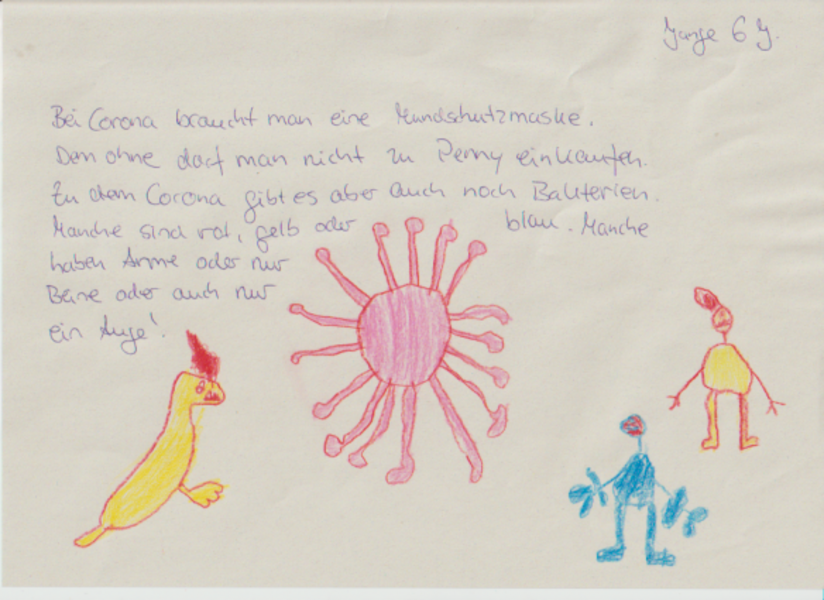 Junge 6 J.
Bei Corona braucht man eine Mundschutzmaske.
Denn ohne darf man nicht zu Penny einkaufen.
Zu dem Corona gibt es aber auch noch Bakterien.
Manche sind rot, gelb oder blau. Manche
haben Arme oder nur
Beine oder auch nur
ein Auge!